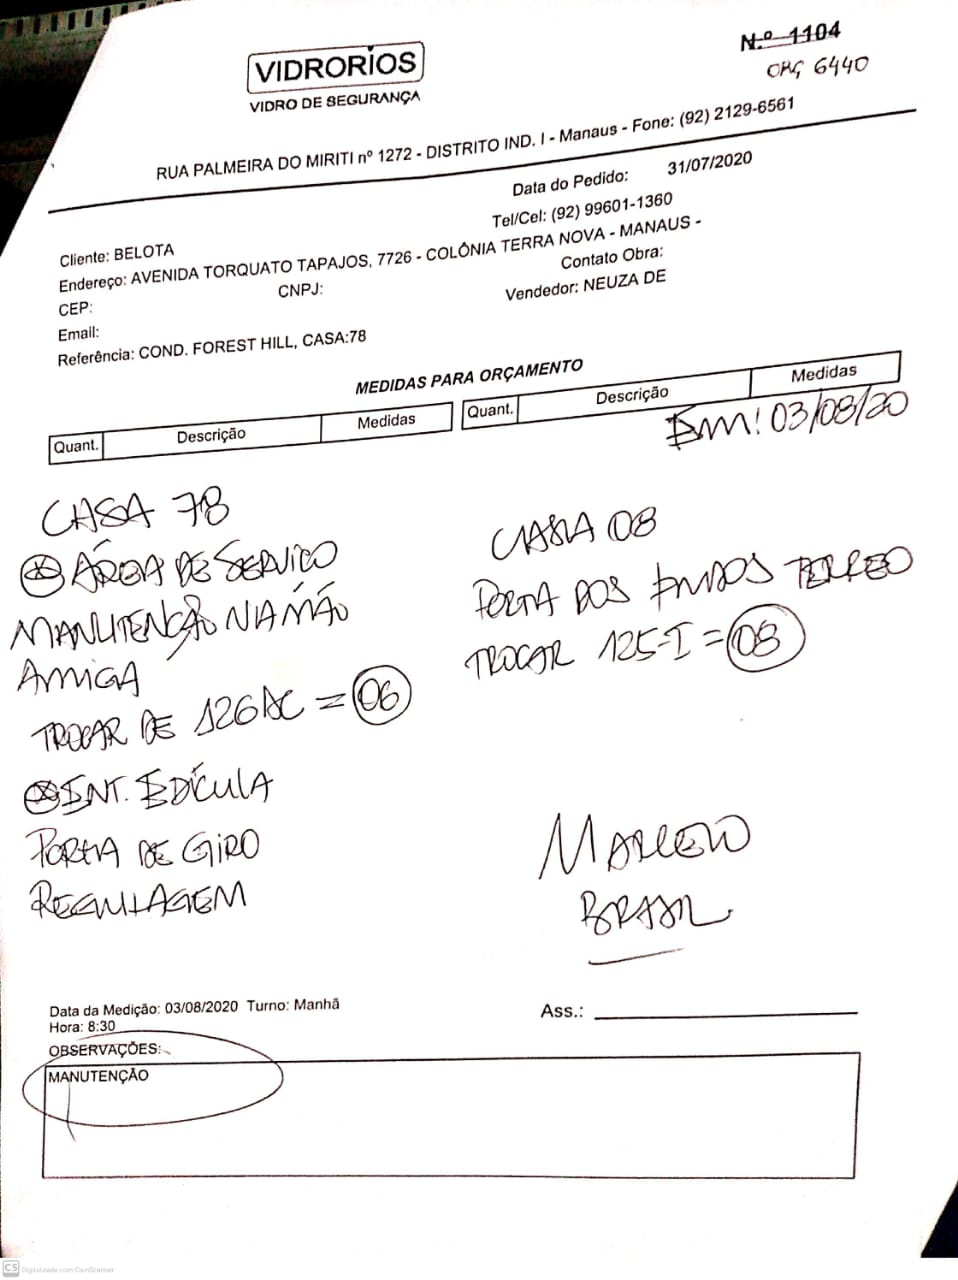 VIDRORIOS
VIDRO DE SEGURANÇA
N.º 1104
ORÇ 6440
RUA PALMEIRA DO MIRITI nº 1272 - DISTRITO IND. I - Manaus - Fone: (92) 2129-6561
Data do Pedido: 31/07/2020
Cliente: BELOTA
Tel/Cel: (92) 99601-1360
Endereço: AVENIDA TORQUATO TAPAJOS, 7726 - COLÔNIA TERRA NOVA - MANAUS -
CEP:
CNPJ:
Contato Obra:
Email:
Vendedor: NEUZA DE
Referência: COND. FOREST HILL, CASA:78
MEDIDAS PARA ORÇAMENTO
Quant. Descrição Medidas Quant. Descrição Medidas
EM! 03/08/20
CASA 78
ÁREA DE SERVICO
MANUTENÇÃO NA MÃO
AMIGA
TROCAR DE 126AC = 06
ENT. EDÍCULA
PORTA DE GIRO
REGULAGEM
CASA 08
PORTA DOS FUNDOS TERREO
TROCAR 125-I = 08
MARCELO
BRASIL
Data da Medição: 03/08/2020 Turno: Manhã
Hora: 8:30
Ass.:
OBSERVAÇÕES:
MANUTENÇÃO
CS Digitalizado com CamScanner